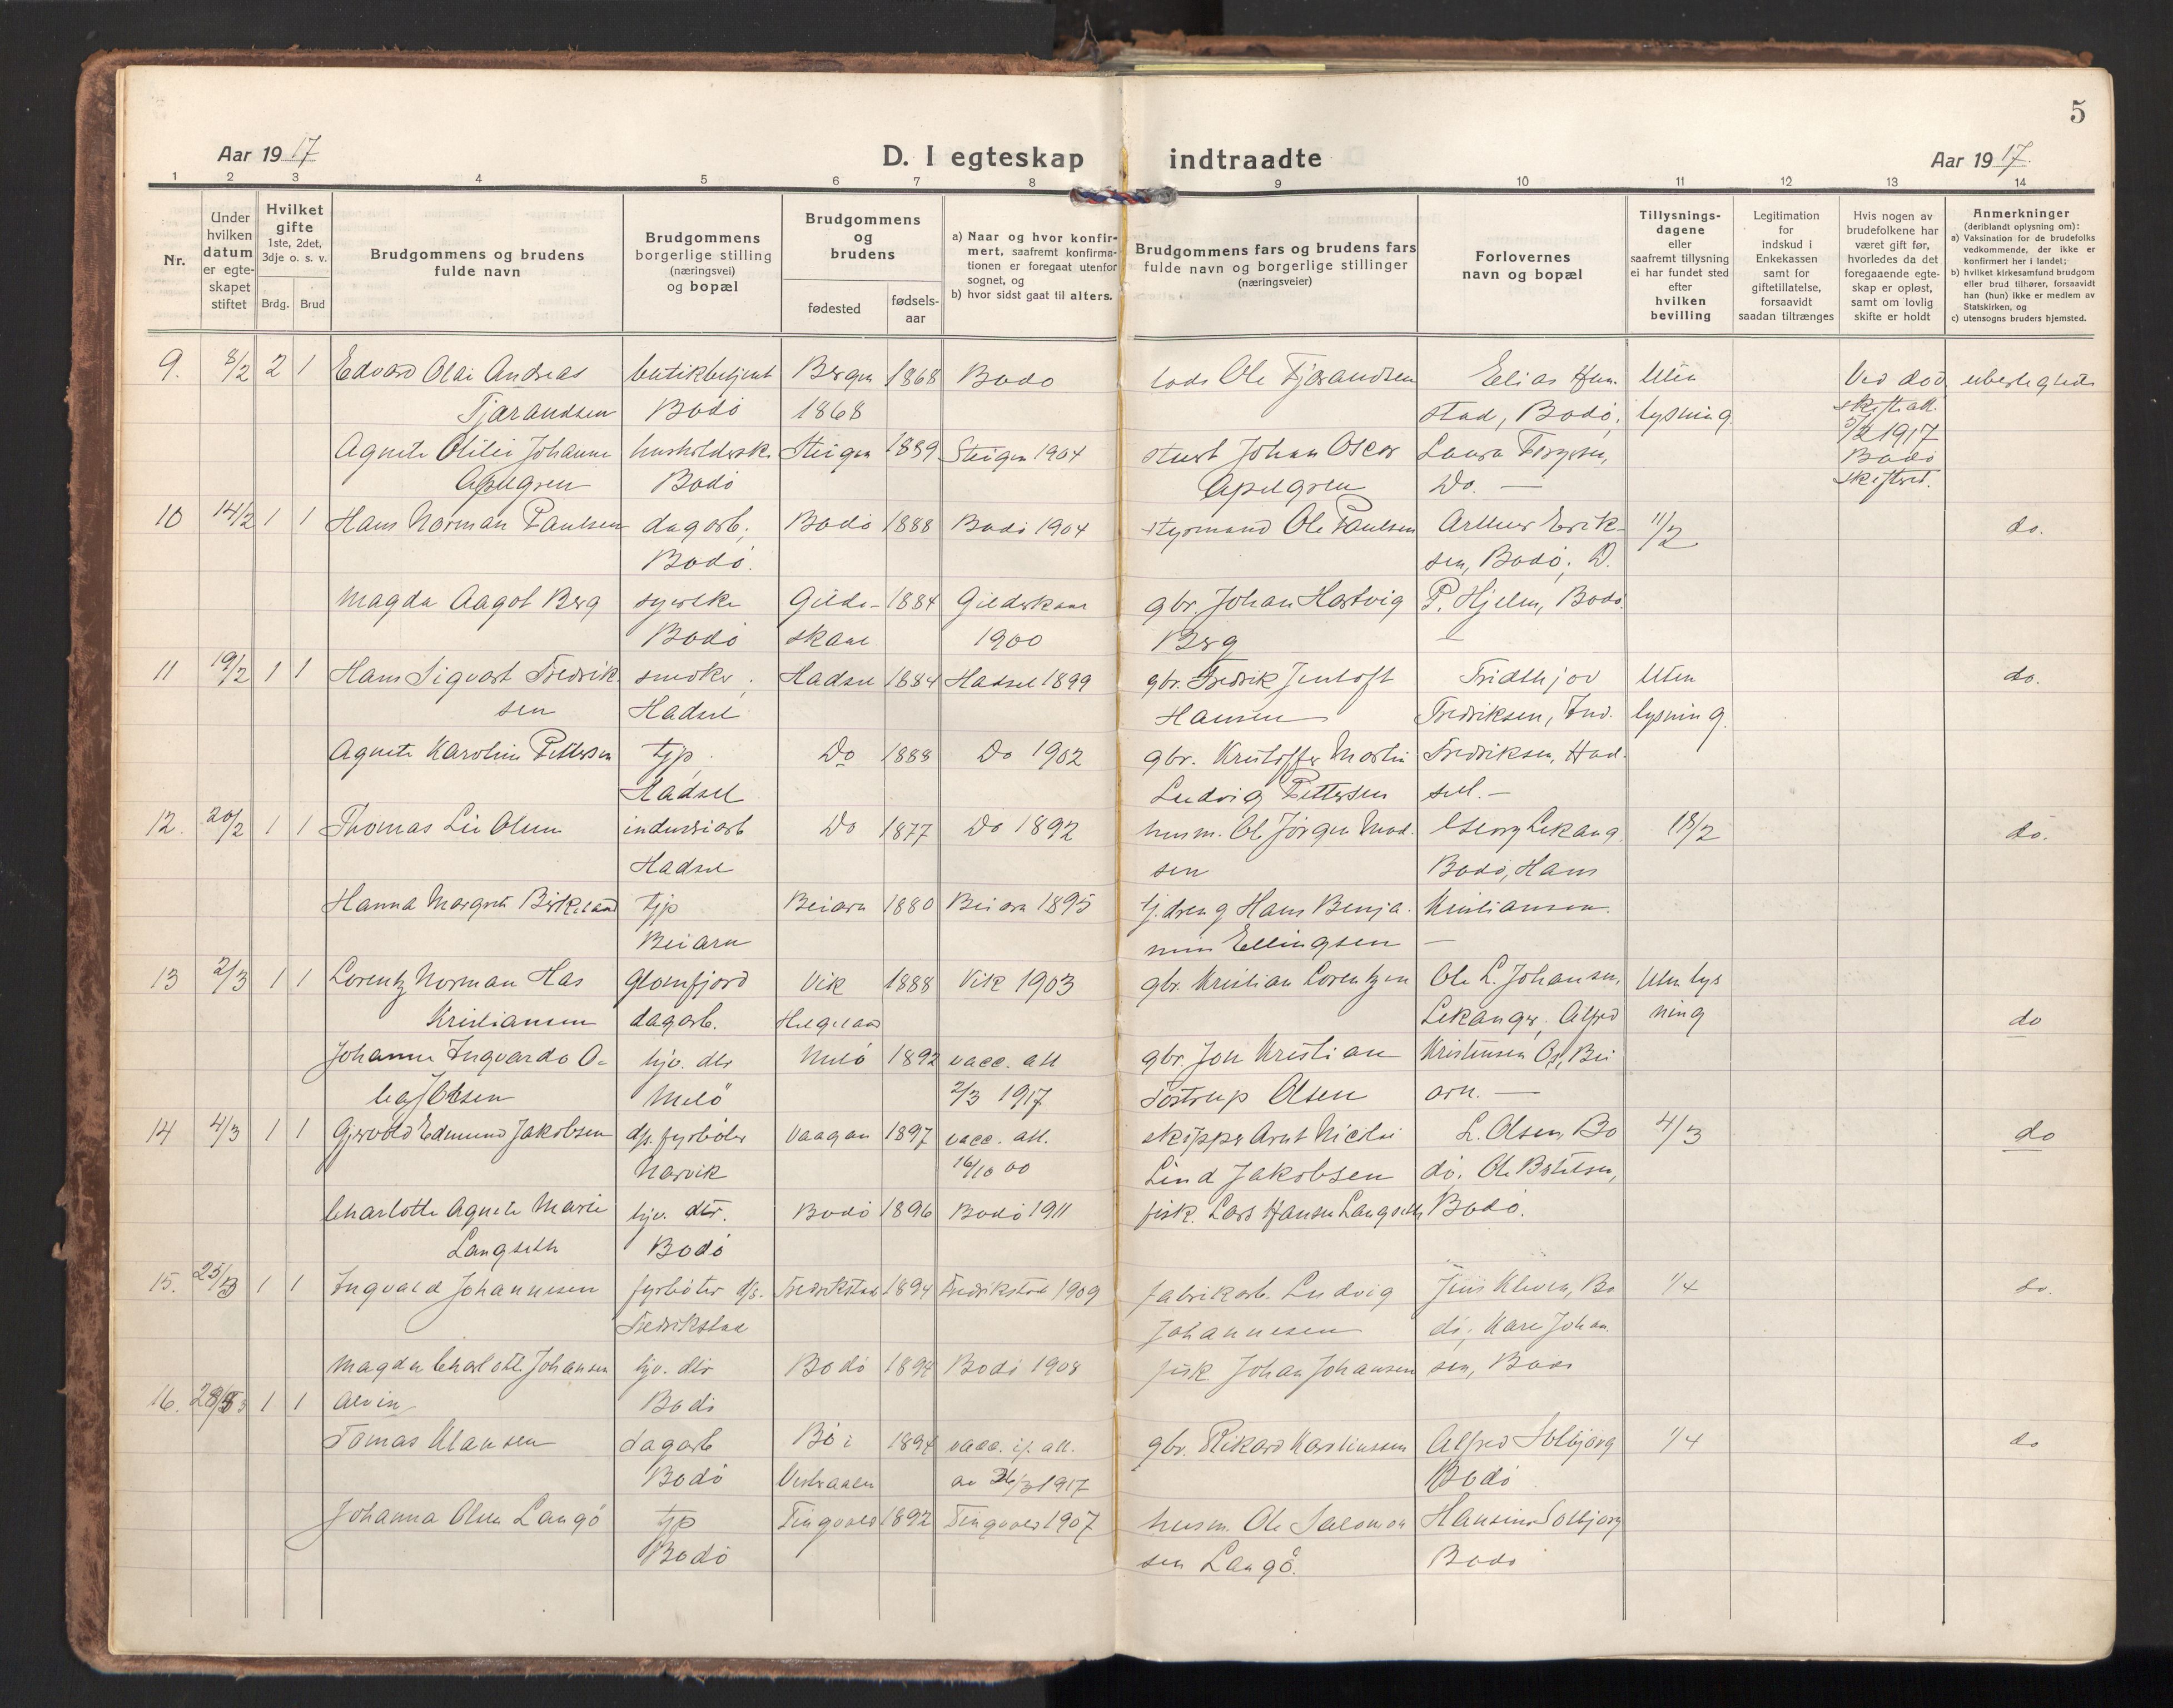 5
Aar 1917
D. I egteskap indtraadte
Aar 1917.
1 2 3 4 5 6 7 8 9 10 11 12 13 14
Nr.
Under hvilken datum er egteskapet stiftet
Hvilket gifte 1ste, 2det, 3dje o. s. v.
Brdg. Brud
Brudgommens og brudens fulde navn
Brudgommens borgerlige stilling (næringsvei) og bopæl
Brudgommens og brudens
fødested
fødselsaar
a) Naar og hvor konfirmert, saafremt konfirmationen er foregaat utenfor sognet, og
b) hvor sidst gaat til alters.
Brudgommens fars og brudens fars fulde navn og borgerlige stillinger (næringsveier)
Forlovernes navn og bopæl
Tillysningsdagene eller saafremt tillysning ei har fundet sted efter hvilken bevilling
Legitimation for indskud i Enkekassen samt for giftetillatelse, forsaavidt saadan tiltrænges
Hvis nogen av brudefolkene har været gift før, hvorledes da det foregaaende egteskap er opløst, samt om lovlig skifte er holdt
Anmerkninger (deriblandt oplysning om):
a) Vaksination for de brudefolks vedkommende, der ikke er konfirmert her i landet;
b) hvilket kirkesamfund brudgom eller brud tilhører, forsaavidt han (hun) ikke er medlem av Statskirken, og
c) utensogns bruders hjemsted.
9. 8/2 2 1 Edvard Olai Andreas butikbetjent Bergen 1868 Bodø lods Ole Tjærandsen Elias Hun- Uten Ved død
Tjærandsen Bodø 1868 stad, Bodø; lysning skifteatt.
5/2 1917
Agnete Otilie Johanne husholdersk. Steigen 1889 Steigen 1904 Johan Oscar Laura Bodø
Apelgren Bodø Apelgren Do. — skifteret.
10 14/2 1 1 Hans Norman Paulsen dagarb., Bodø 1888 Bodø 1904 styrmand Ole Paulsen Arthur Erik- 11/2 do.
Bodø. sen, Bodø; D.
Magda Aagot Berg syerske Gilde- 1884 Gildeskaal gbr. Johan Hartvig P. Hjelm, Bodø.
Bodø skaal 1900 Berg —
11 19/2 1 1 Hans Sigvart Fredrik- snedker, Hadsel 1884 Hadsel 1899 gbr. Fredrik Jentoft Fridthjov Uten do.
sen Hadsel Hansen Fredriksen, Ind. lysning.
Agnete Karoline Pettersen tjp. Do 1888 Do 1902 gbr. Kristoffer Martin Fredriksen, Had-
Hadsel Ludvig Pettersen sel. —
12. 20/2 1 1 Thomas Lie Olsen industriarb Do 1877 Do 1892 husm. Ole Jørgen Mad- Georg Lekang 18/2 do.
Hadsel sen Bodø, Hans
Hanna Margrete Birkeland tjp Beiarn 1880 Beiarn 1895 tj.dreng Hans Benja- Kristiansen.
Beiarn min Ellingsen —
13 2/3 1 1 Lorentz Norman Has Glomfjord Vik 1888 Vik 1903 gbr. Kristian Lorentzen Ole L. Johansen, Uten lys
Kristiansen dagarb. Helgeland Lekanger, Alfred ning do
Johanne Ingvarda O- hjv. dtr Melø 1892 vacc. att gbr. Jon Kristian Kristensen Os, Bei
lea Olsen Melö 2/3 1917 Tostrup Olsen arn. —
14 4/3 1 1 Gjervold Edmund Jakobsen d/s. fyrbøter Vaagan 1897 vacc. att. skipper Arnt Nicolai L. Olsen, Bo 4/3 do
Narvik 16/10 00 Lind Jakobsen dø. Ole Botelsen,
Charlotte Agnete Marie hjv. dtr. Bodø 1896 Bodø 1911 fisk. Lars Hansen Langseth Bodø.
Langseth Bodø
15. 25/3 1 1 Ingvald Johannesen fyrbøter d/s. Fredrikstad 1894 Fredrikstad 1909 fabrikarb. Ludvig Jens Kleven, Bo 1/4 do.
Fredrikstad Johannesen dø; Kare Johan
Magda Charlotte Johansen hjv. dtr Bodø 1894 Bodø 1908 fisk. Johan Johansen sen, Bodø
16. 28/3 1 1 Alvin Bodø
Tomas Klausen dagarb Bø i 1894 vacc. if. att. gbr. Rikard Karolinussen Alfred Solbjørg 1/4 do
Bodø Vesteraalen av 26/3 1917 Bodø
Johanna Olsen Langø tjp Tingvold 1892 Tingvold 1907 husm. Ole Salomon Hansine Solbjørg
Bodø sen Langø. Bodø